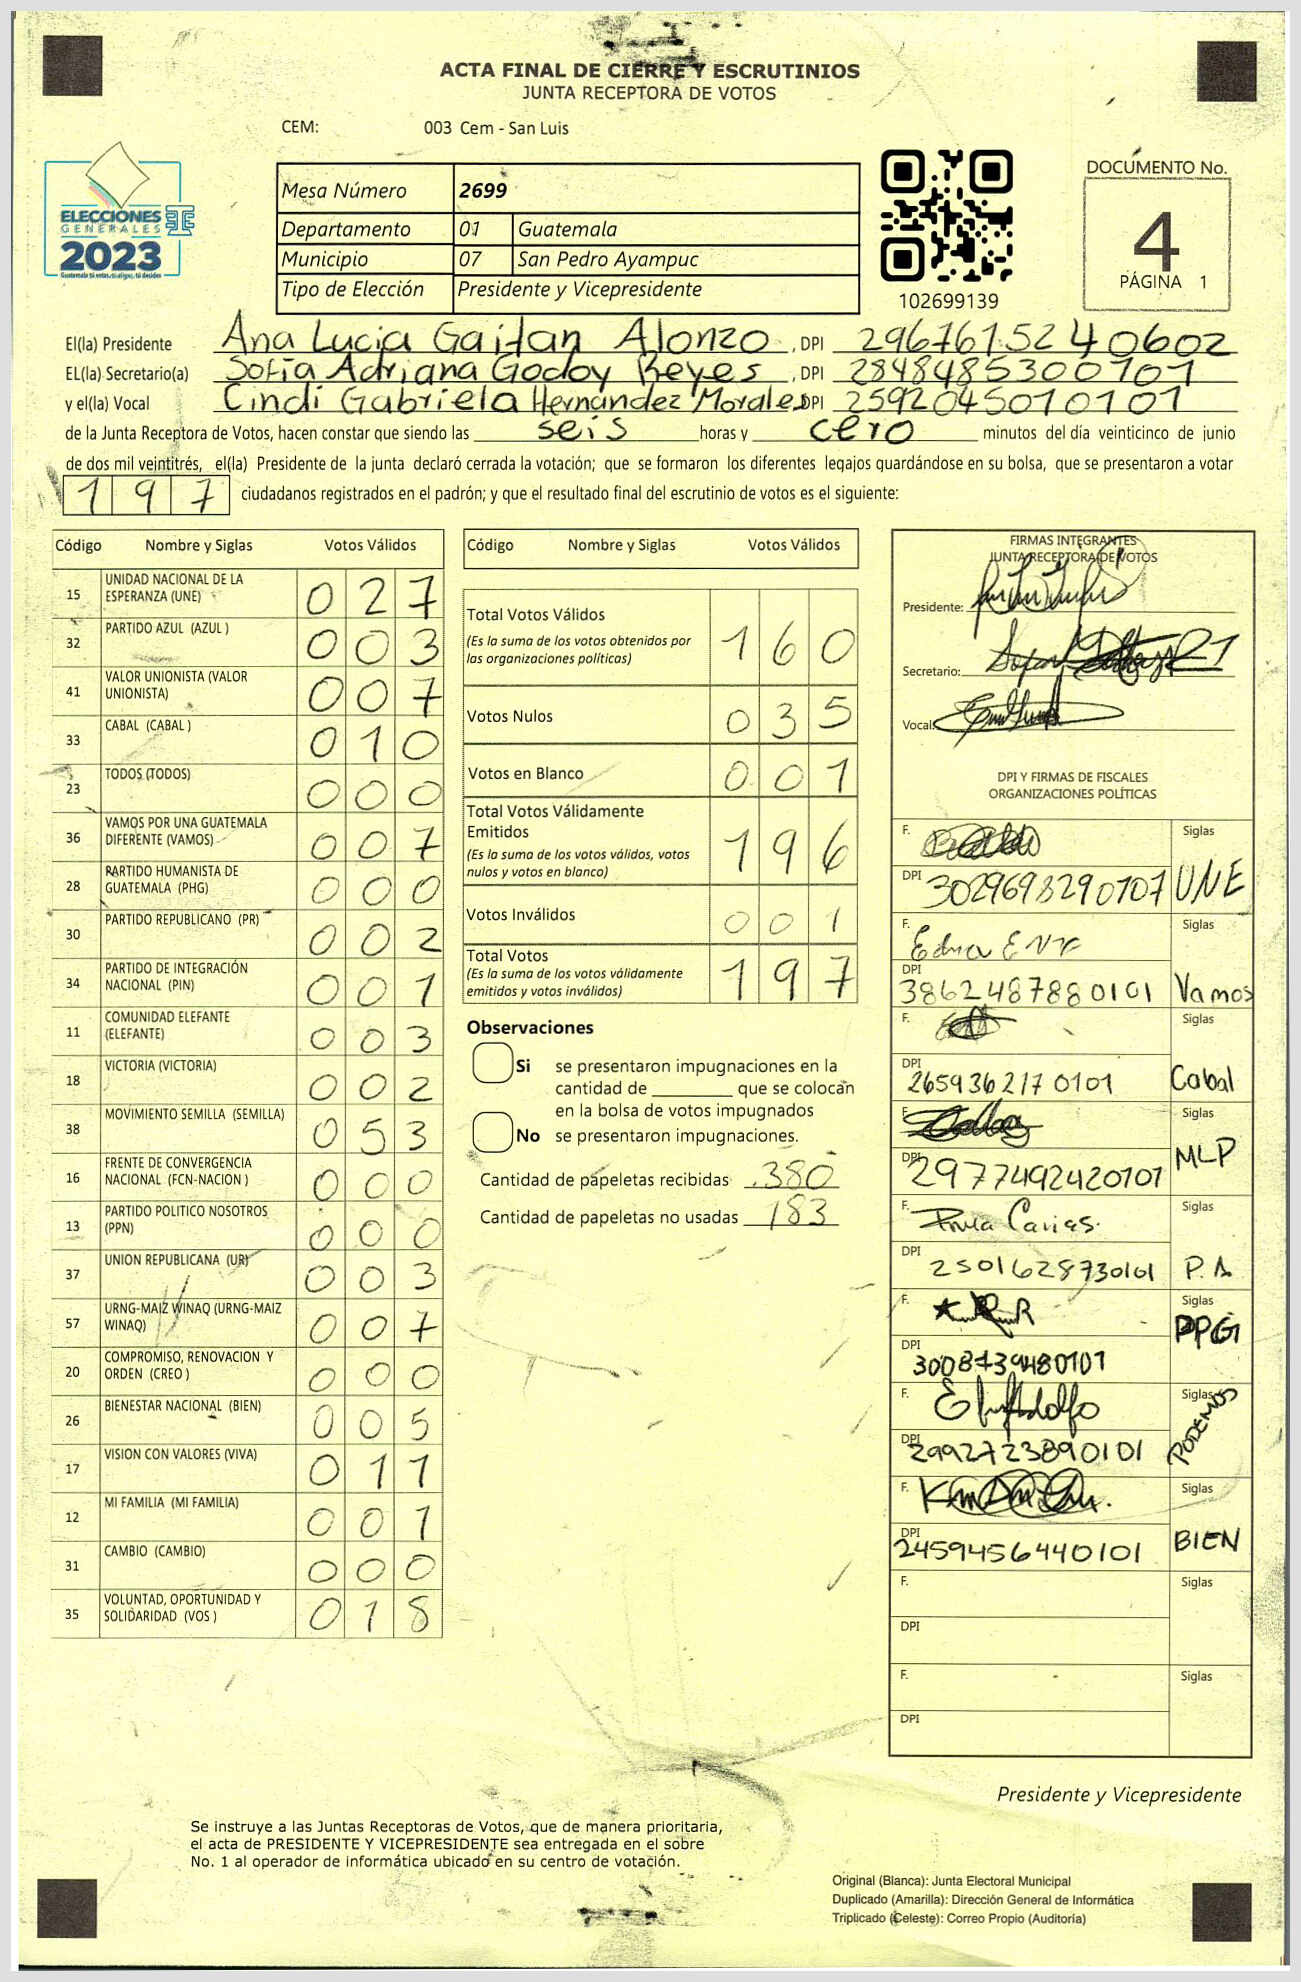 ACTA FINAL DE CIERRE Y ESCRUTINIOS
JUNTA RECEPTORA DE VOTOS
CEM: 003 Cem - San Luis
ELECCIONES
GENERALES
2023
Guatemala tú votas, tú eliges, tú decides
Mesa Número 2699
Departamento 01 Guatemala
Municipio 07 San Pedro Ayampuc
Tipo de Elección Presidente y Vicepresidente
102699139
DOCUMENTO No.
4
PÁGINA 1
El(la) Presidente Ana Lucia Gaitan Alonzo , DPI 2967615240602
EL(la) Secretario(a) Sofía Adriana Godoy Reyes , DPI 2848485300101
y el(la) Vocal Cindi Gabriela Hernández Morales DPI 2592045010101
de la Junta Receptora de Votos, hacen constar que siendo las seis horas y cero minutos del día veinticinco de junio
de dos mil veintitrés, el(la) Presidente de la junta declaró cerrada la votación; que se formaron los diferentes legajos guardándose en su bolsa, que se presentaron a votar
197 ciudadanos registrados en el padrón; y que el resultado final del escrutinio de votos es el siguiente:
Código Nombre y Siglas Votos Válidos
15 UNIDAD NACIONAL DE LA ESPERANZA (UNE) 027
32 PARTIDO AZUL (AZUL ) 003
41 VALOR UNIONISTA (VALOR UNIONISTA) 007
33 CABAL (CABAL ) 010
23 TODOS (TODOS) 000
36 VAMOS POR UNA GUATEMALA DIFERENTE (VAMOS) 007
28 PARTIDO HUMANISTA DE GUATEMALA (PHG) 000
30 PARTIDO REPUBLICANO (PR) 002
34 PARTIDO DE INTEGRACIÓN NACIONAL (PIN) 001
11 COMUNIDAD ELEFANTE (ELEFANTE) 003
18 VICTORIA (VICTORIA) 002
38 MOVIMIENTO SEMILLA (SEMILLA) 053
16 FRENTE DE CONVERGENCIA NACIONAL (FCN-NACION ) 000
13 PARTIDO POLITICO NOSOTROS (PPN) 000
37 UNION REPUBLICANA (UR) 003
57 URNG-MAIZ WINAQ (URNG-MAIZ WINAQ) 007
20 COMPROMISO, RENOVACION Y ORDEN (CREO ) 000
26 BIENESTAR NACIONAL (BIEN) 005
17 VISION CON VALORES (VIVA) 011
12 MI FAMILIA (MI FAMILIA) 001
31 CAMBIO (CAMBIO) 000
35 VOLUNTAD, OPORTUNIDAD Y SOLIDARIDAD (VOS ) 018
Código Nombre y Siglas Votos Válidos
Total Votos Válidos 160
(Es la suma de los votos obtenidos por
las organizaciones políticas)
Votos Nulos 035
Votos en Blanco 001
Total Votos Válidamente
Emitidos 196
(Es la suma de los votos válidos, votos
nulos y votos en blanco)
Votos Inválidos 001
Total Votos 197
(Es la suma de los votos válidamente
emitidos y votos inválidos)
Observaciones
Si se presentaron impugnaciones en la
cantidad de ________ que se colocan
en la bolsa de votos impugnados
No se presentaron impugnaciones.
Cantidad de papeletas recibidas 380
Cantidad de papeletas no usadas 183
FIRMAS INTEGRANTES
JUNTA RECEPTORA DE VOTOS
Presidente:
Secretario:
Vocal:
DPI Y FIRMAS DE FISCALES
ORGANIZACIONES POLÍTICAS
F. Siglas
DPI 3029698290107 UNE
F. Edna Siglas
DPI 3862487880101 Vamos
F. Siglas
DPI 2659362170101 Cabal
F.
DPI 2977492420101 MLP
F. Paula Carias. Siglas
DPI 2501628730101 P.A
F. Siglas
DPI 3008739480101 PPG
F. Siglas
DPI 2992723890101 PODEMOS
F. Siglas
DPI 2459456440101 BIEN
F. Siglas
DPI
F. Siglas
DPI
Presidente y Vicepresidente
Se instruye a las Juntas Receptoras de Votos, que de manera prioritaria,
el acta de PRESIDENTE Y VICEPRESIDENTE sea entregada en el sobre
No. 1 al operador de informática ubicado en su centro de votación.
Original (Blanca): Junta Electoral Municipal
Duplicado (Amarilla): Dirección General de Informática
Triplicado (Celeste): Correo Propio (Auditoría)